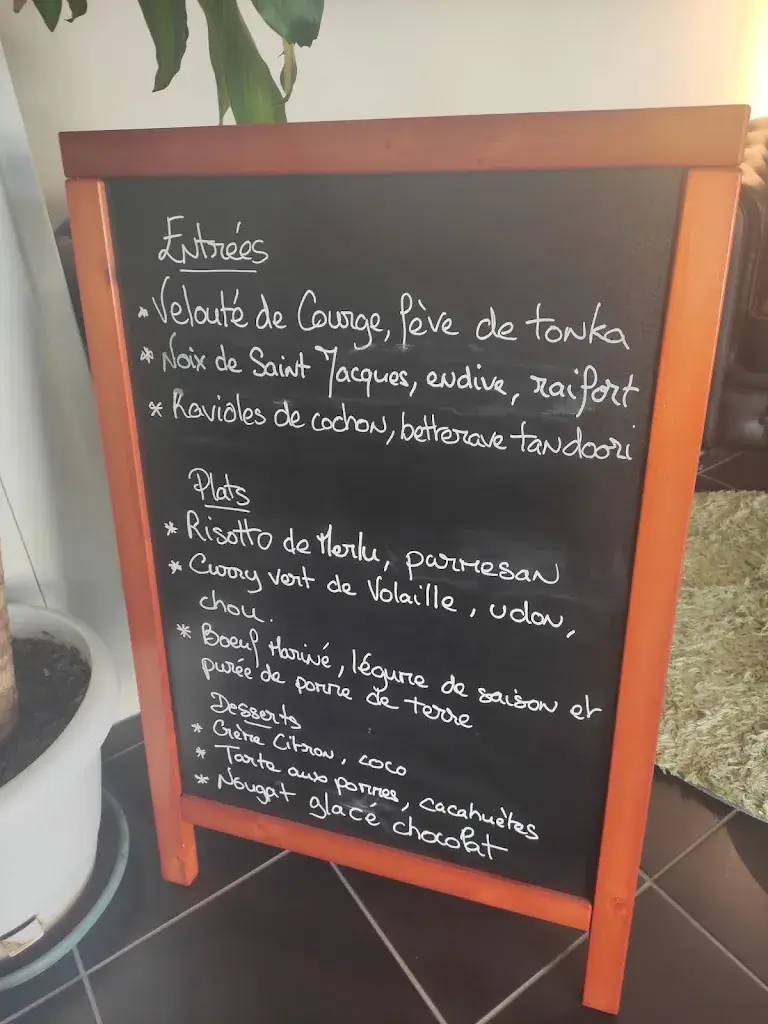 Entrées
* Velouté de Courge, fève de tonka
* Noix de Saint Jacques, endive, raifort
* Ravioles de cochon, betterave tandoori
Plats
* Risotto de Merlu, parmesan
* Curry vert de Volaille, udon,
chou.
* Boeuf Mariné, légume de saison et
purée de pomme de terre
Desserts
* Crème Citron, coco
* Tarte aux pommes, cacahuètes
* Nougat glacé chocolat